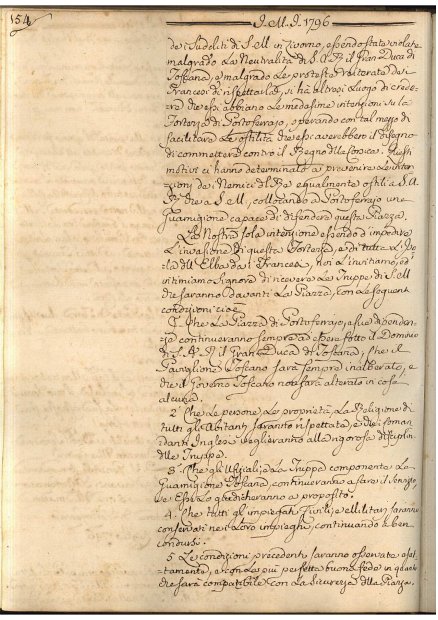 154
I.M.I. 1796
de i Sudditi di S.M. in Livorno, essendo state violate
malgrado La Neutralità di S.A.R. il Gran Duca di
Toscana, e malgrado Le proteste reiterate de i
Francesi di rispettarla, si hà altresì Luogo di crede-
re che essi abbiano Le medesime intenzioni su la
Fortezza di Portoferrajo, sperando con tal mezzo di
facilitare Le ostilità che essi averebbero il disegno
di commettere contro il Regno di Corsica. Questi
motivi ci hanno determinato a prevenire Le inten-
zioni de i Nemici del Rè egualmente ostili a S.A.
R. che a S.M., collocando a Portoferrajo una
Guarnigione capace di difendere questa Piazza.
La Nostra sola intenzione essendo d'impedire
L'invasione di questa Fortezza, e di tutta L'I-
sola dell'Elba da i Francesi, noi L'invitiamo, ed
intimiamo Signore di ricevere Le Truppe di S.M.
che saranno davanti La Piazza, con Le seguenti
condizioni cioè
1. Che La Piazza di Portoferrajo, e sue dipenden-
ze continueranno sempre ad essere sotto il Dominio
di S.A.R. il Gran Duca di Toscana, che il
Paviglione Toscano sarà sempre inalberato, e
che il Governo Toscano non sarà alterato in cosa
alcuna.
2. Che Le persone, Le proprietà, La Religione di
tutti gli Abitanti saranno rispettate, e che i Coman-
danti Inglesi veglieranno alla rigorosa disciplina
delle Truppe.
3. Che gli Uffiziali, e La Truppa componente La
Guarnigione Toscana, continueranno a fare il Servizio
se Essi Lo giudicheranno a proposito.
4. Che tutti gl'impiegati Civili, e Militari saranno
conservati nei Loro impieghi, continuando a ben
condursi.
5. Le condizioni precedenti saranno osservate esat-
tamente, e con La più perfetta buona fede in quanto
che sarà compatibile con La Sicurezza della Piazza.